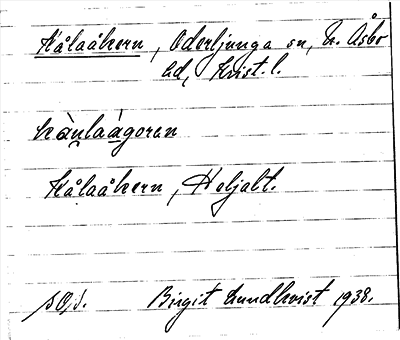 Kålaåkern, Oderljunga sn, N. Åsbo
hd, Krist. l.
kàu̯laàgoren
Kålaåkern, Heljalt.
s O, d.
Birgit Lundkvist 1938.